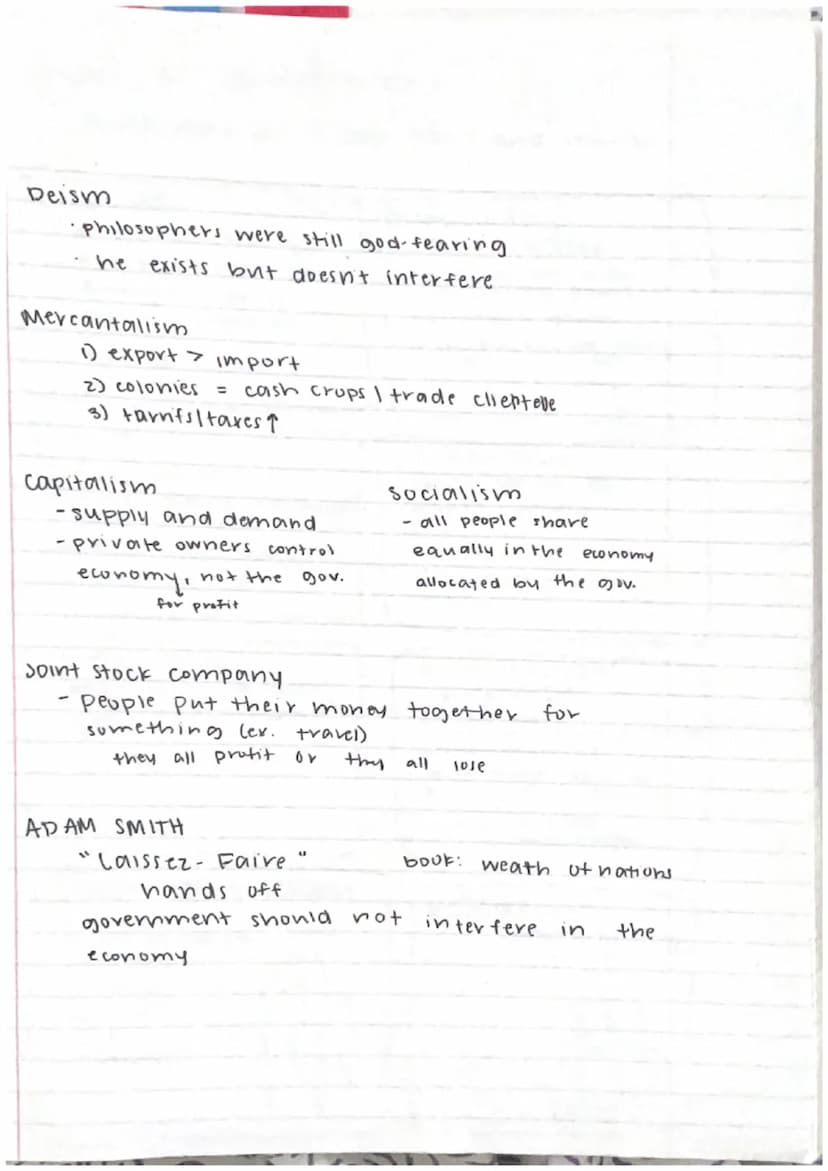 Deism
· philosophers were still god-fearing
· he exists but doesn't interfere
Mercantalism
1) export > import
2) colonies = cash crops | trade
3) tarrifs | taxes ↑
Capitalism
- supply and demand
- private owners control
economy, not the gov.
for profit
socialism
- all people share
equally in the economy
allocated by the gov.
Joint Stock Company
- People put their money together for
something (ex. travel)
they all profit or thy all lose
ADAM SMITH
"Laissez-Faire"
book: weath of nations
hands off
government should not interfere in the
economy